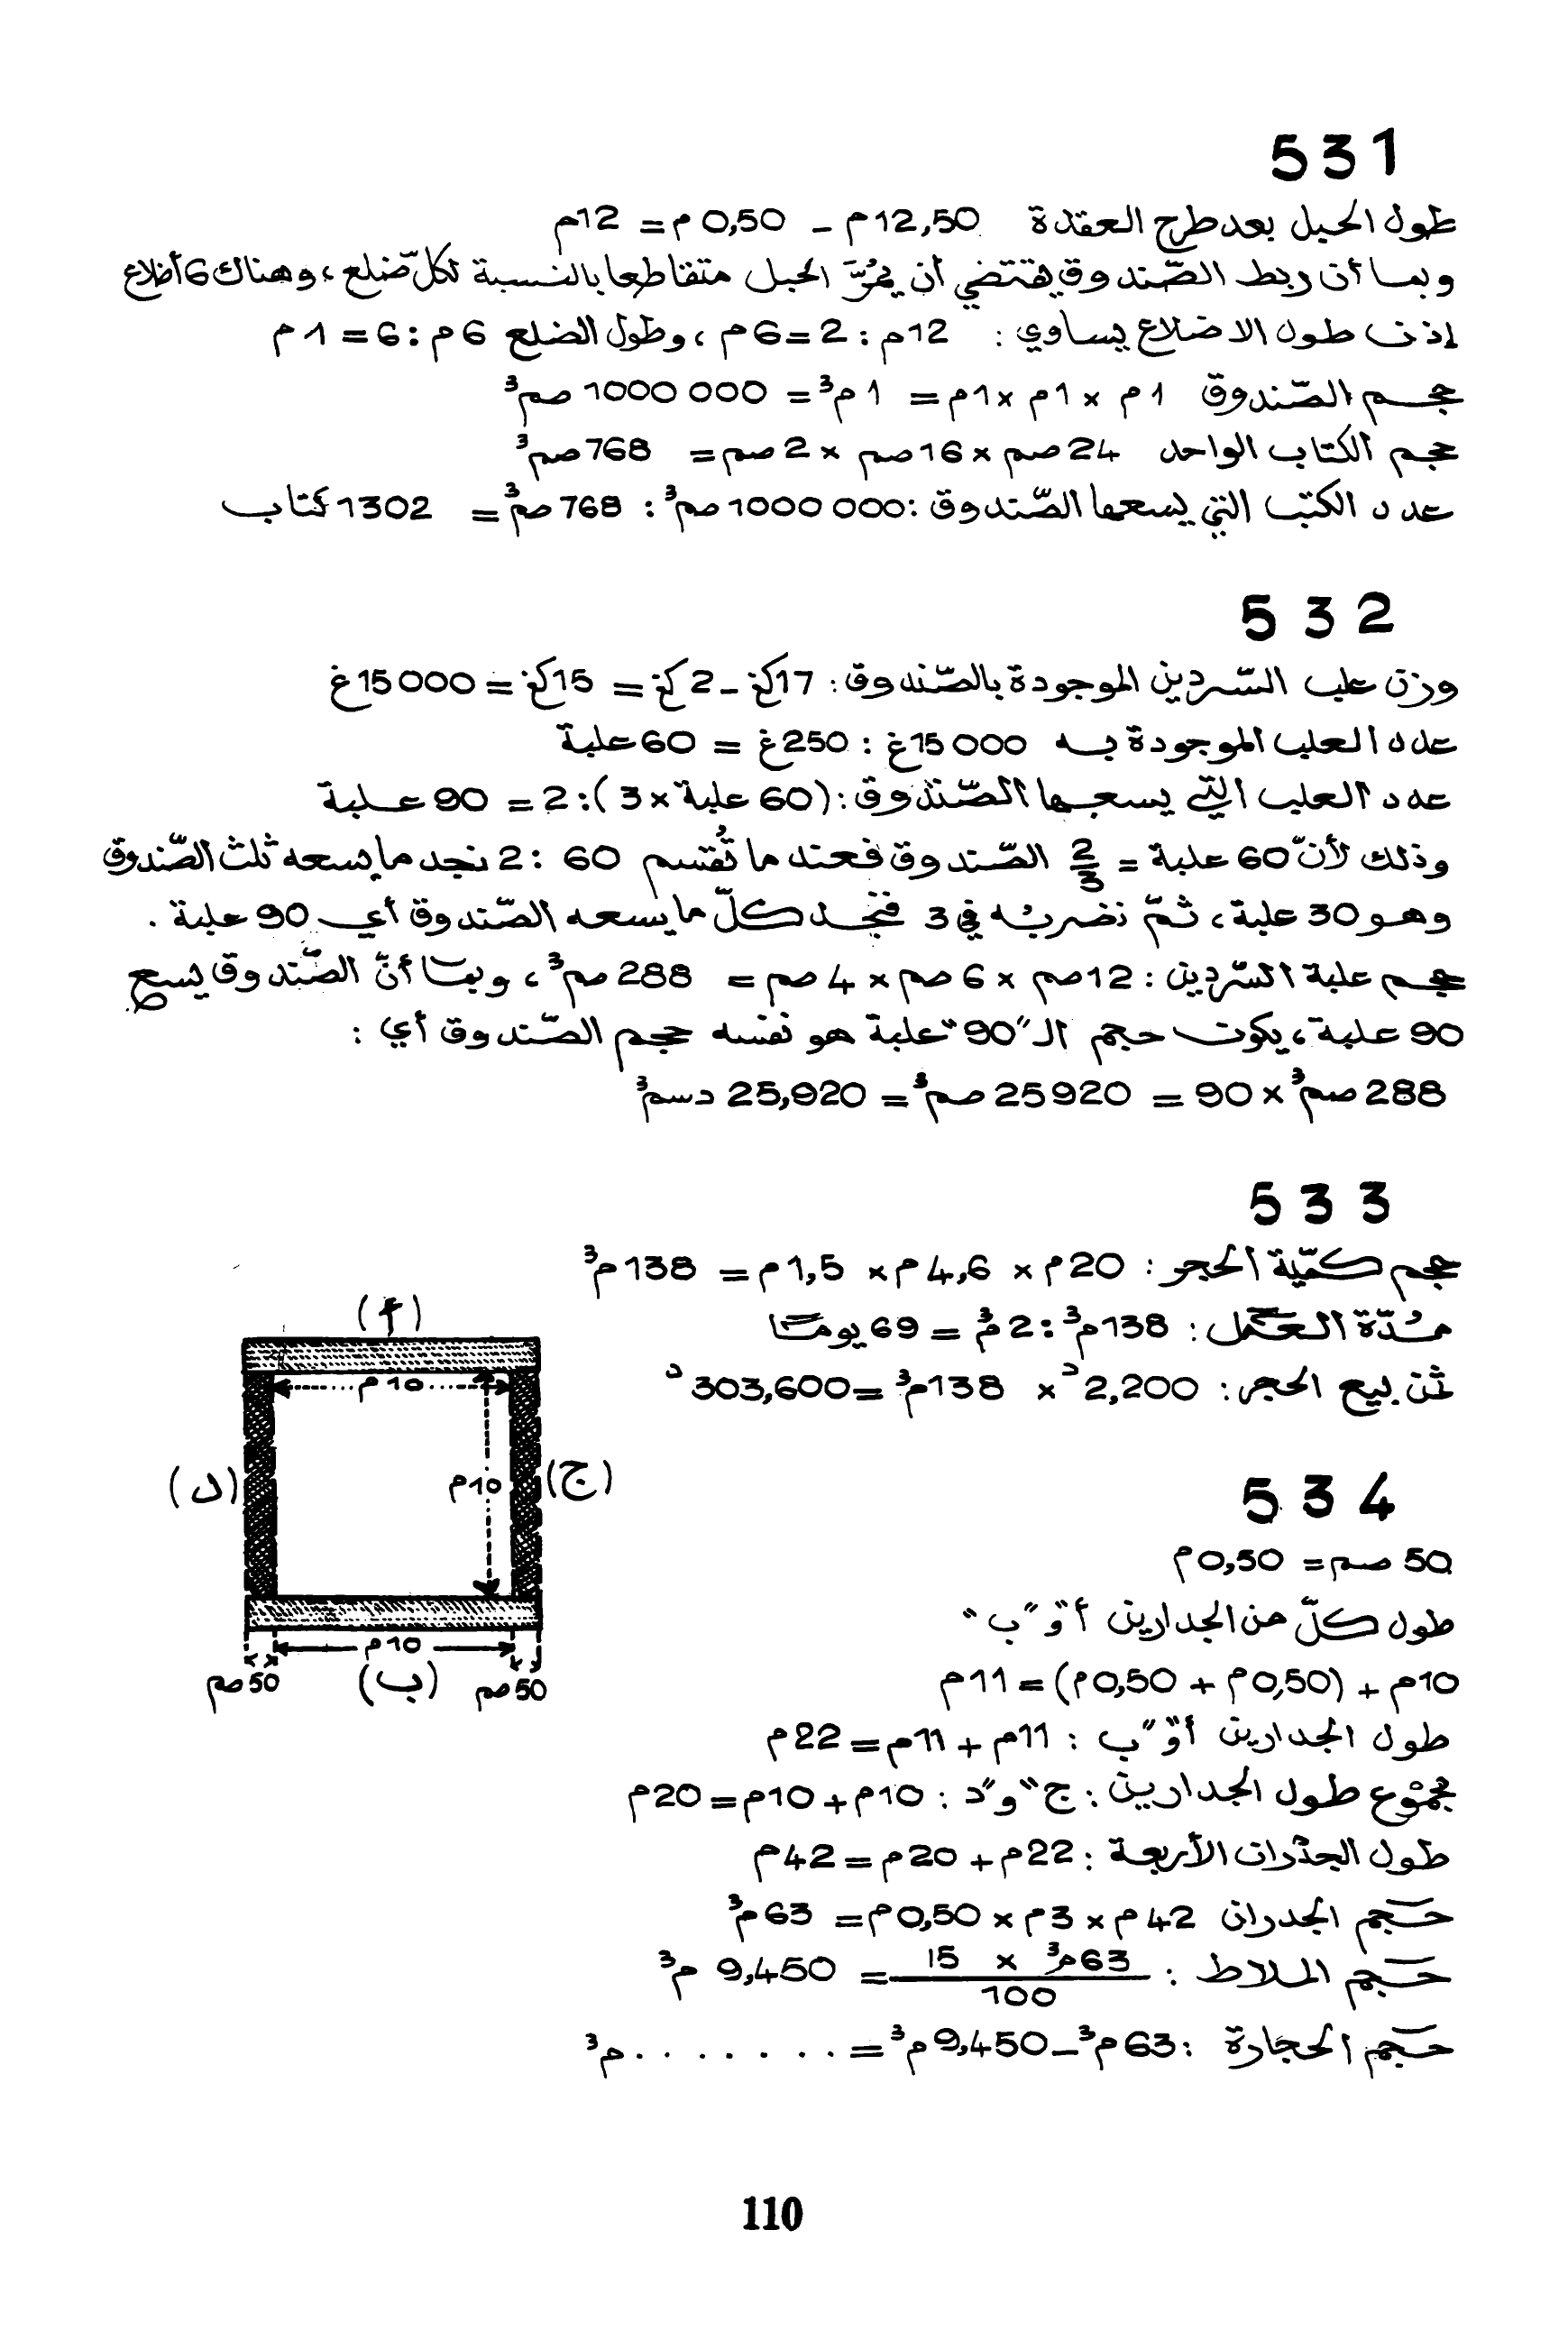 531
طول الحبل بعد طرح العقدة 12,50م - 0,50م = 12م
وبما أن ربط الصّندوق يقتضي أن يمُرَّ الحبل متقاطعا بالنسبة لكلّ ضلع، وهناك 6 أضلاع
إذن طول الاضلاع يساوي : 12م : 2 = 6م ، وطول الضلع 6م : 6 = 1م
حجم الصّندوق 1م × 1م × 1م = 1م³ = 1000 000 صم³
حجم الكتاب الواحد 24 صم × 16 صم × 2 صم = 768 صم³
عدد الكتب التي يسعها الصّندوق : 1000 000 صم³ : 768 صم³ = 1302 كتاب
532
وزن علب السّردين الموجودة بالصّندوق : 17كغ - 2كغ = 15كغ = 15000غ
عدد العلب الموجودة به 15000غ : 250غ = 60 علبة
عدد العلب التي يسعها الصّندوق : (60 علبة × 3) : 2 = 90 علبة
وذلك لأنّ 60 علبة = 2/3 الصّندوق فعندما نُقسم 60 : 2 نجد ما يسعه ثلث الصّندوق
وهو 30 علبة، ثمّ نضربُه في 3 فنجد كلّ ما يسعه الصّندوق أي 90 علبة .
حجم علبة السّردين : 12صم × 6 صم × 4 صم = 288 صم³ ، وبما أنّ الصّندوق يسع
90 علبة، يكون حجم الـ "90" علبة هو نفسه حجم الصّندوق أي :
288 صم³ × 90 = 25920 صم³ = 25,920 دسم³
533
حجم كميّة الحجر : 20م × 4,6م × 1,5م = 138م³
مُدّة العَمَل : 138م³ : 2م³ = 69 يومًا
ثمن بيع الحجر : 2,200د × 138م³ = 303,600د
(أ)
10م
(د)
10م
(ج)
10م
50صم
(ب)
50صم
534
50 صم = 0,50م
طول كلّ من الجدارين أ و "ب"
10م + (0,50م + 0,50م) = 11م
طول الجدارين أ و "ب : 11م + 11م = 22م
مجموع طول الجدارين : ج" و "د : 10م + 10م = 20م
طول الجدران الأربعة : 22م + 20م = 42م
حَجم الجدران 42م × 3م × 0,50م = 63م³
حَجم الملاط : 63م³ × 15 / 100 = 9,450م³
حَجم الحجارة : 63م³ - 9,450م³ = . . . . . . . م³
110